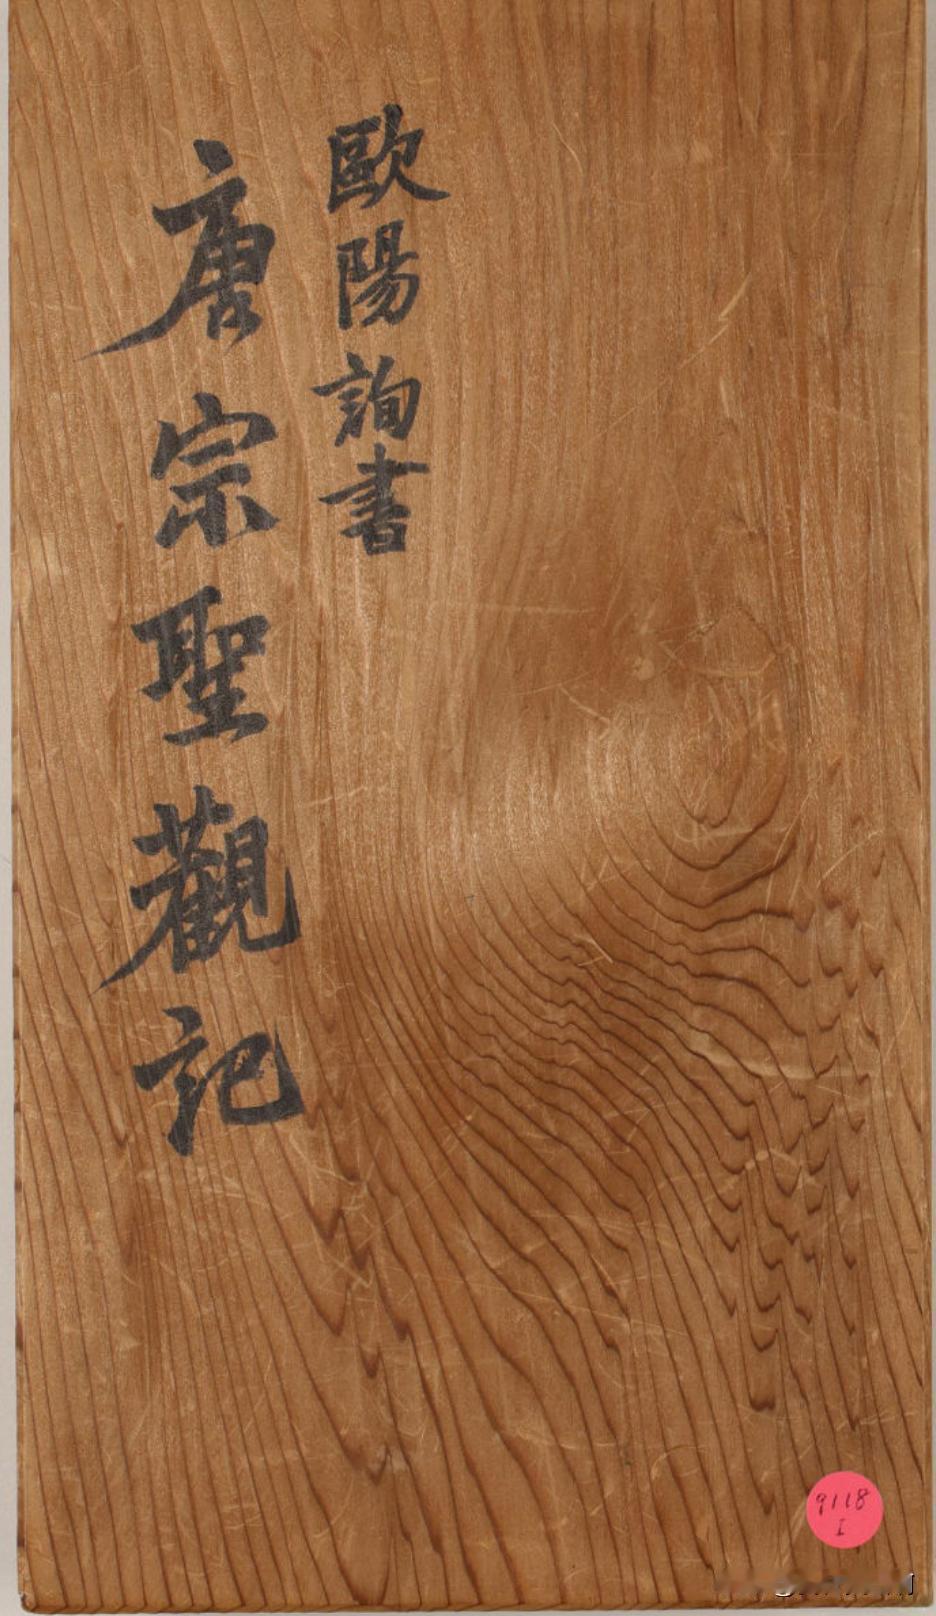 歐陽詢書
唐宗聖觀記
9118
I